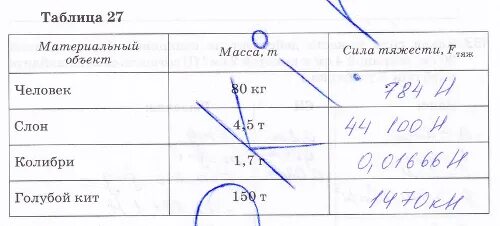 Таблица 27
Материальный объект Масса, m Сила тяжести, Fтяж
Человек 80 кг 784 Н
Слон 4,5 т 44 100 Н
Колибри 1,7 г 0,01666 Н
Голубой кит 150 т 1470 кН